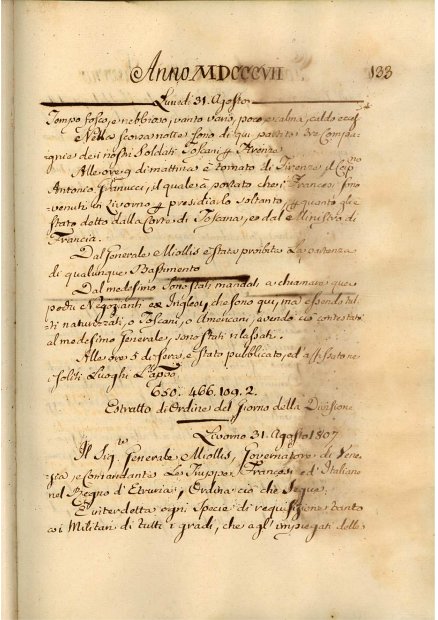 Anno MDCCCVII 133
Lunedi 31. Agosto
Tempo fosco, e nebbioso, vanto vario, poco e calma, caldo
Nella scorsa notte sono di qui partite tre Compa
gnie dei nostri Soldati Toscani Firenze
Alle ore 9 di mattina è tornato di Firenze il
Antonio il quale à portato che i Francesi sono
venuti in Livorno presidiarlo soltanto, quanto è
stato detto dalla Corte di Toscana, e dal Ministro di
Francia.
Dal Generale Miollis è stata proibita La partenza
di qualunque Bastimento
Dal medesimo sono stati mandati a chiamare que
pochi Negozianti Inglesi che sono qui, ma essendo tut
ti naturalizati, o Toscani, o Americani, avendo ciò contestato
al medesimo Generale, sono stati rilassati.
Alle ore 5 di sera, è stato pubblicato, ed affisso ne
i soliti Luoghi
650. 466. 109. 2.
Estratto di Ordine del Giorno della Divisione
Livorno 31. Agosto 1807
Il Sig. Generale Miollis, Governatore di Vene
zia, e Comandante Le Truppe Francesi ed Italiane
nel Regno d'Etruria, Ordina ciò che Segue.
È interdetta ogni Specie di requisizione tanto
ai Militari di tutti i gradi, che agl'impiegati delle